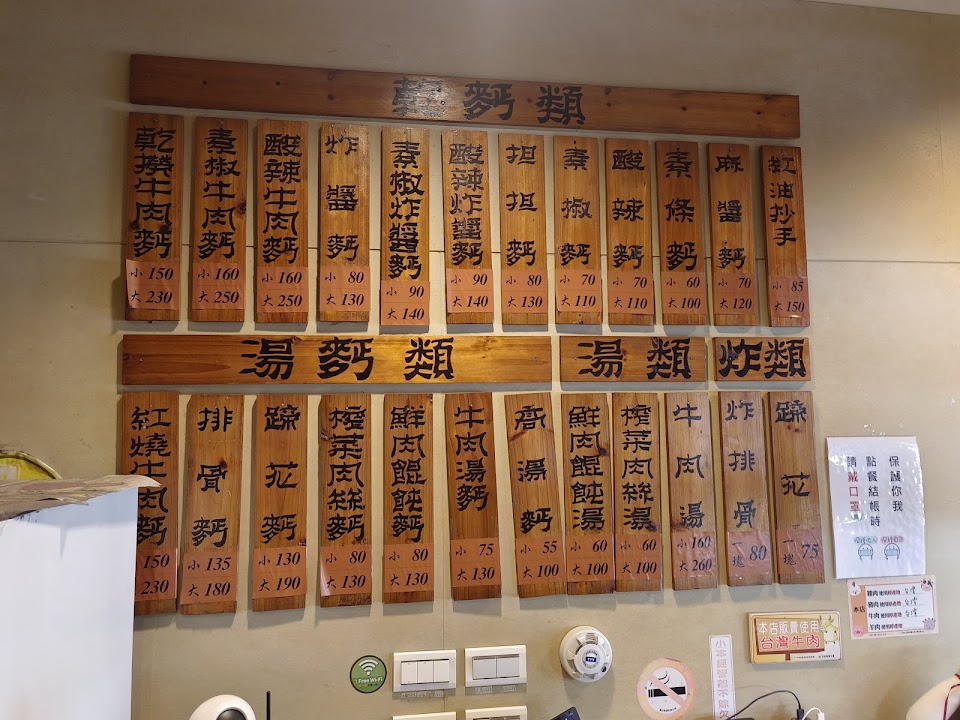 乾麪類
乾撈牛肉麪 小 150 大 230
素椒牛肉麪 小 160 大 250
酸辣牛肉麪 小 160 大 250
炸醬麪 小 80 大 130
素椒炸醬麪 小 90 大 140
酸辣炸醬麪 小 90 大 140
担担麪 小 80 大 130
素椒麪 小 70 大 110
酸辣麪 小 70 大 110
素條麪 小 60 大 100
麻醬麪 小 70 大 120
紅油抄手 小 85 大 150
湯麪類
紅燒牛肉麪 150 230
排骨麪 小 135 大 180
蹄花麪 小 130 大 190
榨菜肉絲麪 小 80 大 130
鮮肉餛飩麪 小 80 大 130
牛肉湯麪 小 75 大 130
湯麪 小 55 大 100
湯類
鮮肉餛飩湯 小 60 大 100
榨菜肉絲湯 小 60 大 100
牛肉湯 小 160 大 260
炸類
炸排骨 一塊 80
蹄花 一塊 75
保護你我
點餐結帳時
請戴口罩
本店
豬肉
牛肉
羊肉
台灣
台灣
本店販賣使用
台灣牛肉
Free Wi-Fi